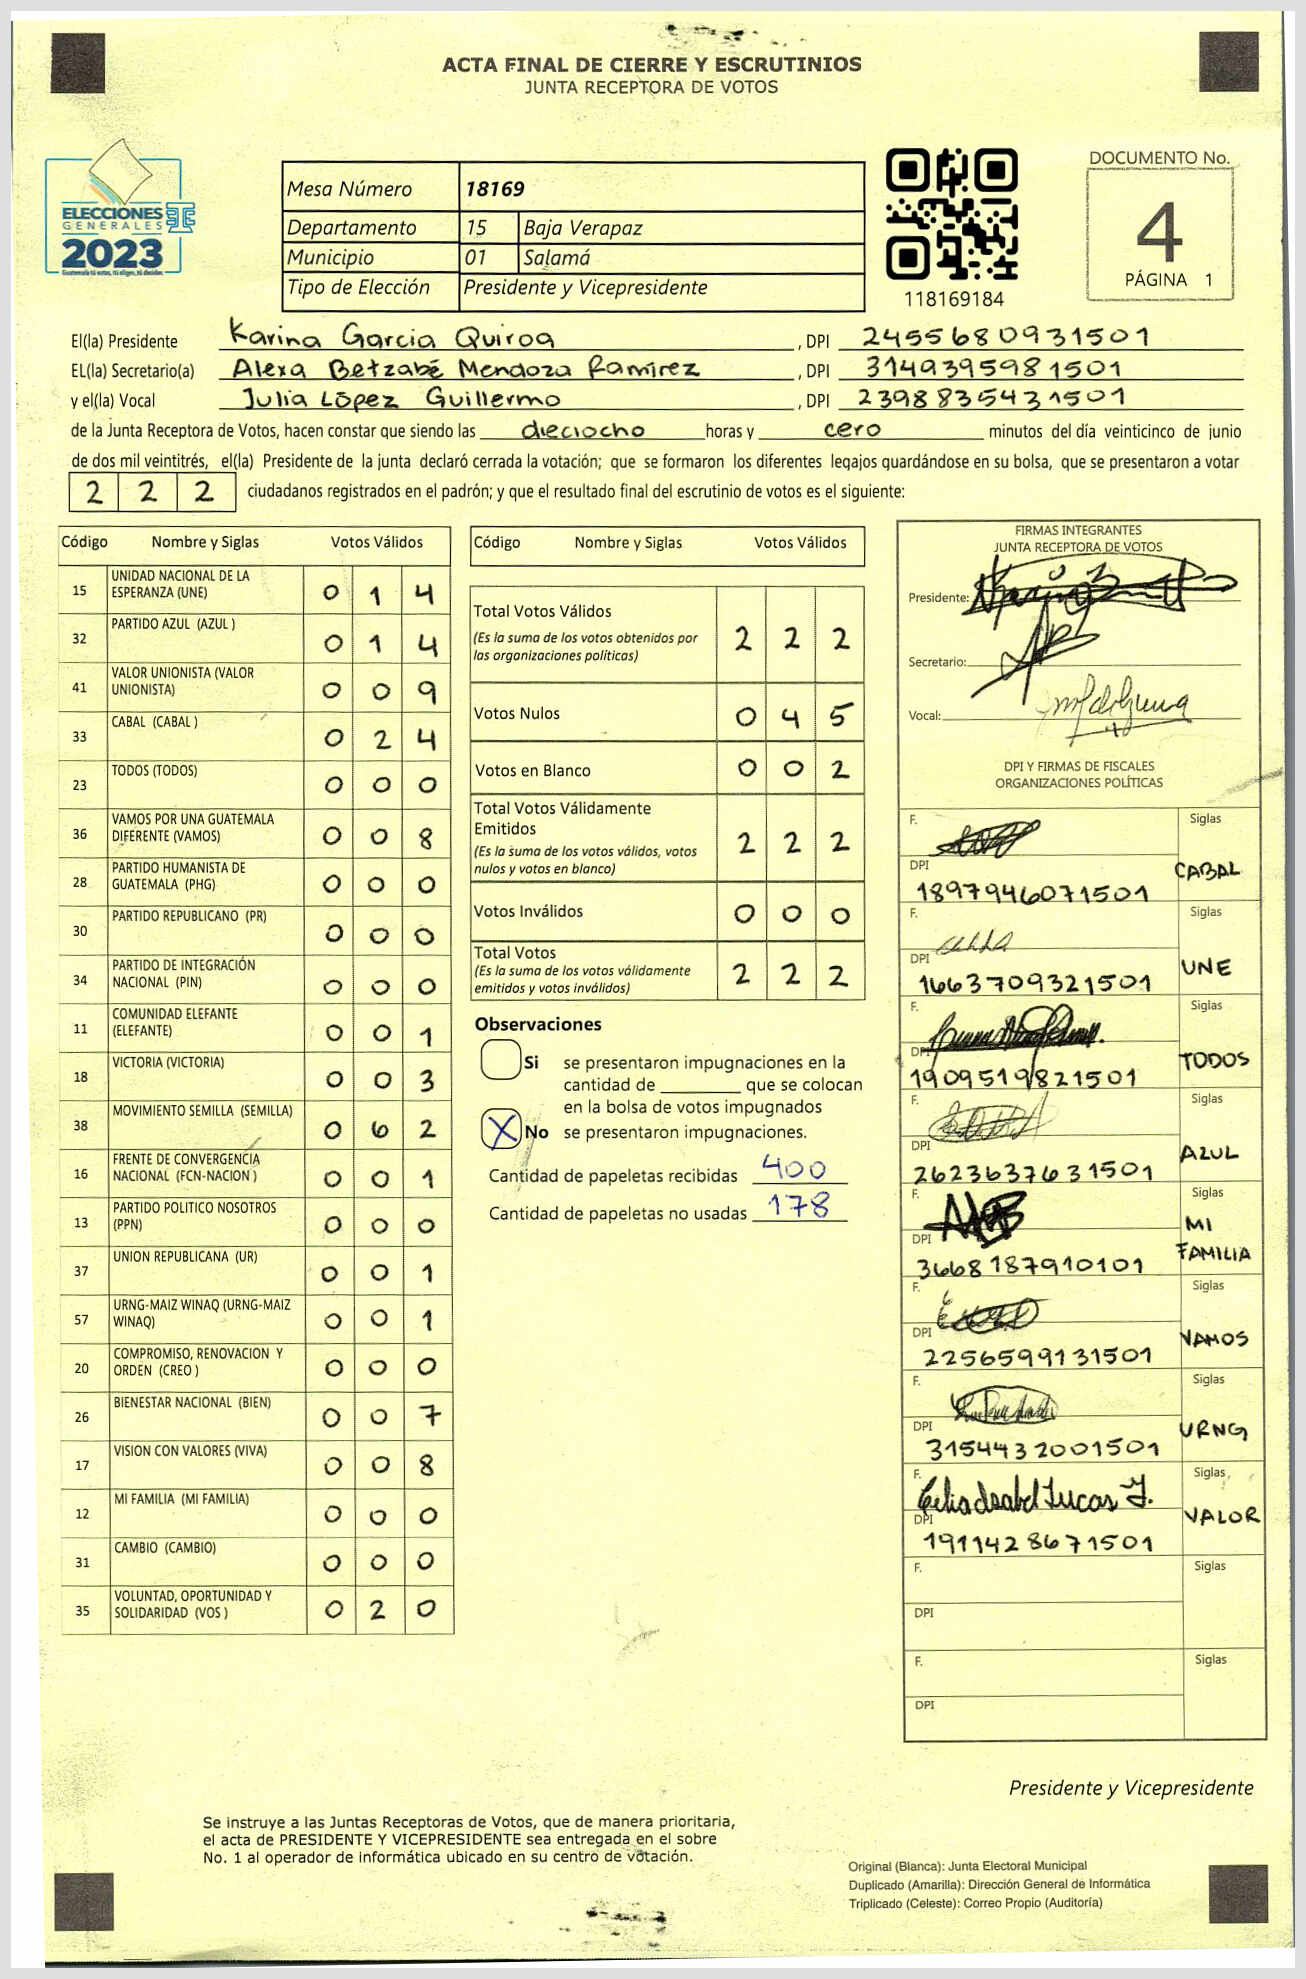 ACTA FINAL DE CIERRE Y ESCRUTINIOS
JUNTA RECEPTORA DE VOTOS
ELECCIONES
GENERALES
2023
Guatemala tú votas, tú eliges, tú decides.
Mesa Número 18169
Departamento 15 Baja Verapaz
Municipio 01 Salamá
Tipo de Elección Presidente y Vicepresidente
118169184
DOCUMENTO No.
4
PÁGINA 1
El(la) Presidente Karina Garcia Quiroa, DPI 2455680931501
EL(la) Secretario(a) Alexa Betzabé Mendoza Ramírez, DPI 3149395981501
y el(la) Vocal Julia López Guillermo, DPI 2398835431501
de la Junta Receptora de Votos, hacen constar que siendo las dieciocho horas y cero minutos del día veinticinco de junio
de dos mil veintitrés, el(la) Presidente de la junta declaró cerrada la votación; que se formaron los diferentes legajos guardándose en su bolsa, que se presentaron a votar
2 2 2 ciudadanos registrados en el padrón; y que el resultado final del escrutinio de votos es el siguiente:
Código Nombre y Siglas Votos Válidos
15 UNIDAD NACIONAL DE LA
ESPERANZA (UNE) 0 1 4
32 PARTIDO AZUL (AZUL ) 0 1 4
41 VALOR UNIONISTA (VALOR
UNIONISTA) 0 0 9
33 CABAL (CABAL ) 0 2 4
23 TODOS (TODOS) 0 0 0
36 VAMOS POR UNA GUATEMALA
DIFERENTE (VAMOS) 0 0 8
28 PARTIDO HUMANISTA DE
GUATEMALA (PHG) 0 0 0
30 PARTIDO REPUBLICANO (PR) 0 0 0
34 PARTIDO DE INTEGRACIÓN
NACIONAL (PIN) 0 0 0
11 COMUNIDAD ELEFANTE
(ELEFANTE) 0 0 1
18 VICTORIA (VICTORIA) 0 0 3
38 MOVIMIENTO SEMILLA (SEMILLA) 0 6 2
16 FRENTE DE CONVERGENCIA
NACIONAL (FCN-NACION ) 0 0 1
13 PARTIDO POLITICO NOSOTROS
(PPN) 0 0 0
37 UNION REPUBLICANA (UR) 0 0 1
57 URNG-MAIZ WINAQ (URNG-MAIZ
WINAQ) 0 0 1
20 COMPROMISO, RENOVACION Y
ORDEN (CREO ) 0 0 0
26 BIENESTAR NACIONAL (BIEN) 0 0 7
17 VISION CON VALORES (VIVA) 0 0 8
12 MI FAMILIA (MI FAMILIA) 0 0 0
31 CAMBIO (CAMBIO) 0 0 0
35 VOLUNTAD, OPORTUNIDAD Y
SOLIDARIDAD (VOS ) 0 2 0
Código Nombre y Siglas Votos Válidos
Total Votos Válidos 2 2 2
(Es la suma de los votos obtenidos por
las organizaciones políticas)
Votos Nulos 0 4 5
Votos en Blanco 0 0 2
Total Votos Válidamente
Emitidos 2 2 2
(Es la suma de los votos válidos, votos
nulos y votos en blanco)
Votos Inválidos 0 0 0
Total Votos 2 2 2
(Es la suma de los votos válidamente
emitidos y votos inválidos)
Observaciones
Si se presentaron impugnaciones en la
cantidad de ________ que se colocan
en la bolsa de votos impugnados
X No se presentaron impugnaciones.
Cantidad de papeletas recibidas 400
Cantidad de papeletas no usadas 178
FIRMAS INTEGRANTES
JUNTA RECEPTORA DE VOTOS
Presidente:
Secretario:
Vocal:
DPI Y FIRMAS DE FISCALES
ORGANIZACIONES POLÍTICAS
F. Siglas
DPI CABAL
1897946071501
F. Siglas
DPI UNE
1663709321501
F. Siglas
DPI TODOS
1909519821501
F. Siglas
DPI AZUL
2623637631501
F. Siglas
DPI MI
FAMILIA
3668187910101
F. Siglas
DPI VAMOS
2256599131501
F. Siglas
DPI URNG
3154432001501
F. Celia Isabel Lucas J. Siglas
DPI VALOR
1911428671501
F. Siglas
DPI
F. Siglas
DPI
Presidente y Vicepresidente
Se instruye a las Juntas Receptoras de Votos, que de manera prioritaria,
el acta de PRESIDENTE Y VICEPRESIDENTE sea entregada en el sobre
No. 1 al operador de informática ubicado en su centro de votación.
Original (Blanca): Junta Electoral Municipal
Duplicado (Amarilla): Dirección General de Informática
Triplicado (Celeste): Correo Propio (Auditoría)